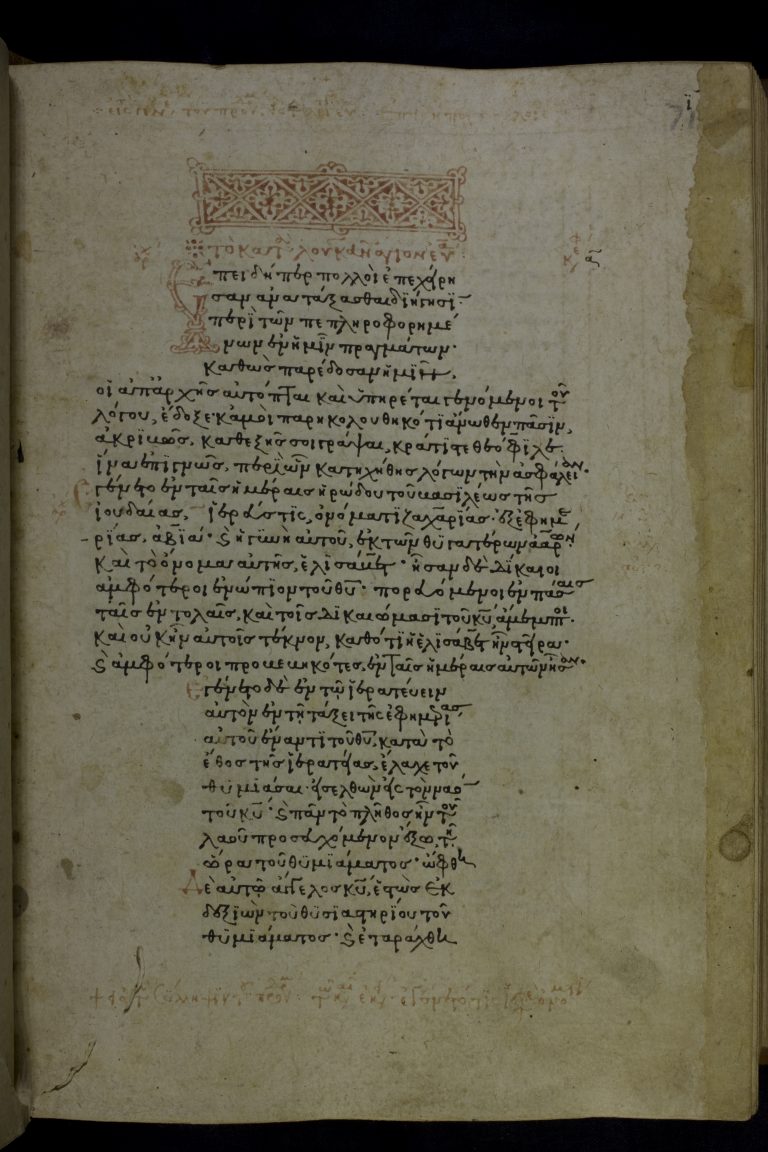 τὸ κατὰ λουκὰν ἅγιον εὐ
Ἐπειδήπερ πολλοὶ ἐπεχείρη
σαν ἀνατάξασθαι διήγησϊ
περὶ τῶν πεπληροφορημέ
νων ἐν ἡμῖν πραγμάτων·
καθὼς παρέδοσαν ἡμῖν,
οἱ ἀπ' ἀρχῆς αὐτόπται καὶ ὑπηρέται γενόμενοι τοῦ
λόγου, ἔδοξε κἀμοὶ παρηκολουθηκότι ἄνωθεν πᾶσϊν,
ἀκριβῶς, καθεξῆς σοι γράψαι, κράτιστε θεόφιλε
ἵνα ἐπιγνῶς, περὶ ὧν κατηχήθης λόγων τὴν ἀσφάλειαν·
Ἐγένετο ἐν ταῖς ἡμέραις ἡρώδου τοῦ βασιλέως τῆς
ἰουδαίας, ἱερεύς τις, ὀνόματι ζαχαρίας· ἐξ ἐφημε
ρίας, ἀβϊά· καὶ ἡ γυνὴ αὐτοῦ, ἐκ τῶν θυγατέρων ἀαρών·
καὶ τὸ ὄνομα αὐτῆς, ἐλισάβετ· ἦσαν δὲ δίκαιοι
ἀμφότεροι ἐνώπιον τοῦ θυ· πορευόμενοι ἐν πάσαις
ταῖς ἐντολαῖς, καὶ τοῖς δικαιώμασϊ τοῦ κυ, ἄμεμπτοι·
καὶ οὐκ ἦν αὐτοῖς τέκνον, καθότι ἡ ἐλισάβετ ἦν στεῖρα·
καὶ ἀμφότεροι προβεβηκότες, ἐν ταῖς ἡμέραις αὐτῶν ἦσαν·
Ἐγένετο δὲ ἐν τῷ ἱερατεύειν
αὐτὸν ἐν τῇ τάξει τῆς ἐφημερίας
αὐτοῦ ἔναντϊ τοῦ θυ, κατὰ τὸ
ἔθος τῆς ἱερατείας, ἔλαχε τοῦ
θυμιάσαι εἰσελθὼν εἰς τὸν ναὸ
τοῦ κυ· καὶ πᾶν τὸ πλῆθος ἦν τοῦ
λαοῦ προσευχόμενον ἔξω, τῇ
ὥρα τοῦ θυμϊάματος· ὤφθη
Δὲ αὐτῷ ἄγγελος κυ, ἑστὼς ἐκ
δεξιῶν τοῦ θυσϊαστηρίου τοῦ
θυμϊάματος· καὶ ἐταράχθη